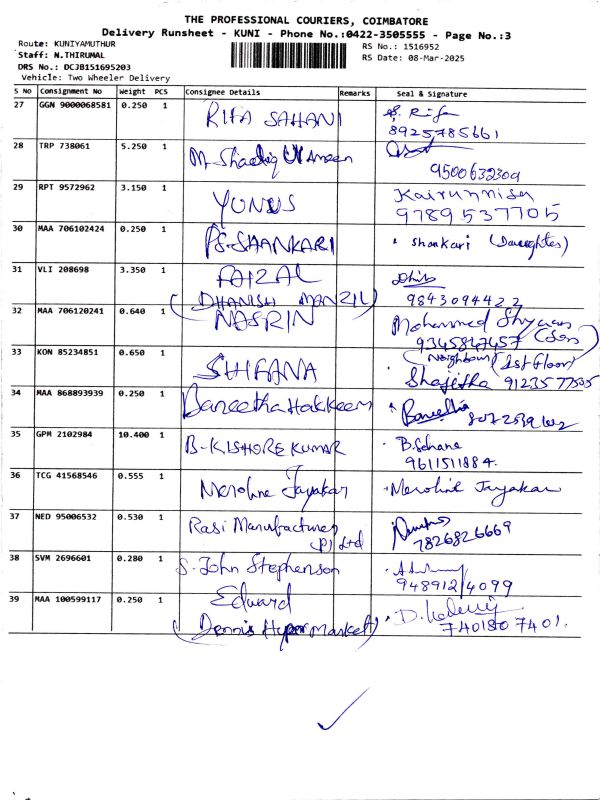 THE PROFESSIONAL COURIERS, COIMBATORE
Delivery Runsheet - KUNI - Phone No.:0422-3505555 - Page No.:3
Route: KUNIYAMUTHUR
RS No.: 1516952
Staff: N.THIRUMAL
RS Date: 08-Mar-2025
DRS No.: DCJB151695203
Vehicle: Two Wheeler Delivery
S No Consignment No Weight PCS Consignee Details Remarks Seal & Signature
27 GGN 9000068581 0.250 1 RIFA SAHANI
8925785661
28 TRP 738061 5.250 1
9500632309
29 RPT 9572962 3.150 1 YUNUS Kairunnisa
9789537705
30 MAA 706102424 0.250 1 PS.SHANKARI Shankari (Daughter)
31 VLI 208698 3.350 1 FAIZAL
(DHANISH MANZIL) 9843094422
32 MAA 706120241 0.640 1 NASRIN Mohammed (Son)
9345847457
33 KON 85234851 0.650 1 SHIFANA (Neighbour) (1st Floor)
Shajitha 9123577505
34 MAA 868893939 0.250 1
35 GPM 2102984 10.400 1 B-KISHORE KUMAR
9611511884.
36 TCG 41568546 0.555 1 Jayakar Jayakar
37 NED 95006532 0.530 1 Rasi Manufactures
(P) Ltd 7826826669
38 SVM 2696601 0.280 1 S. John Stephenson
948912/4099
39 MAA 100599117 0.250 1 Edward
(Dennis Hyper Market)